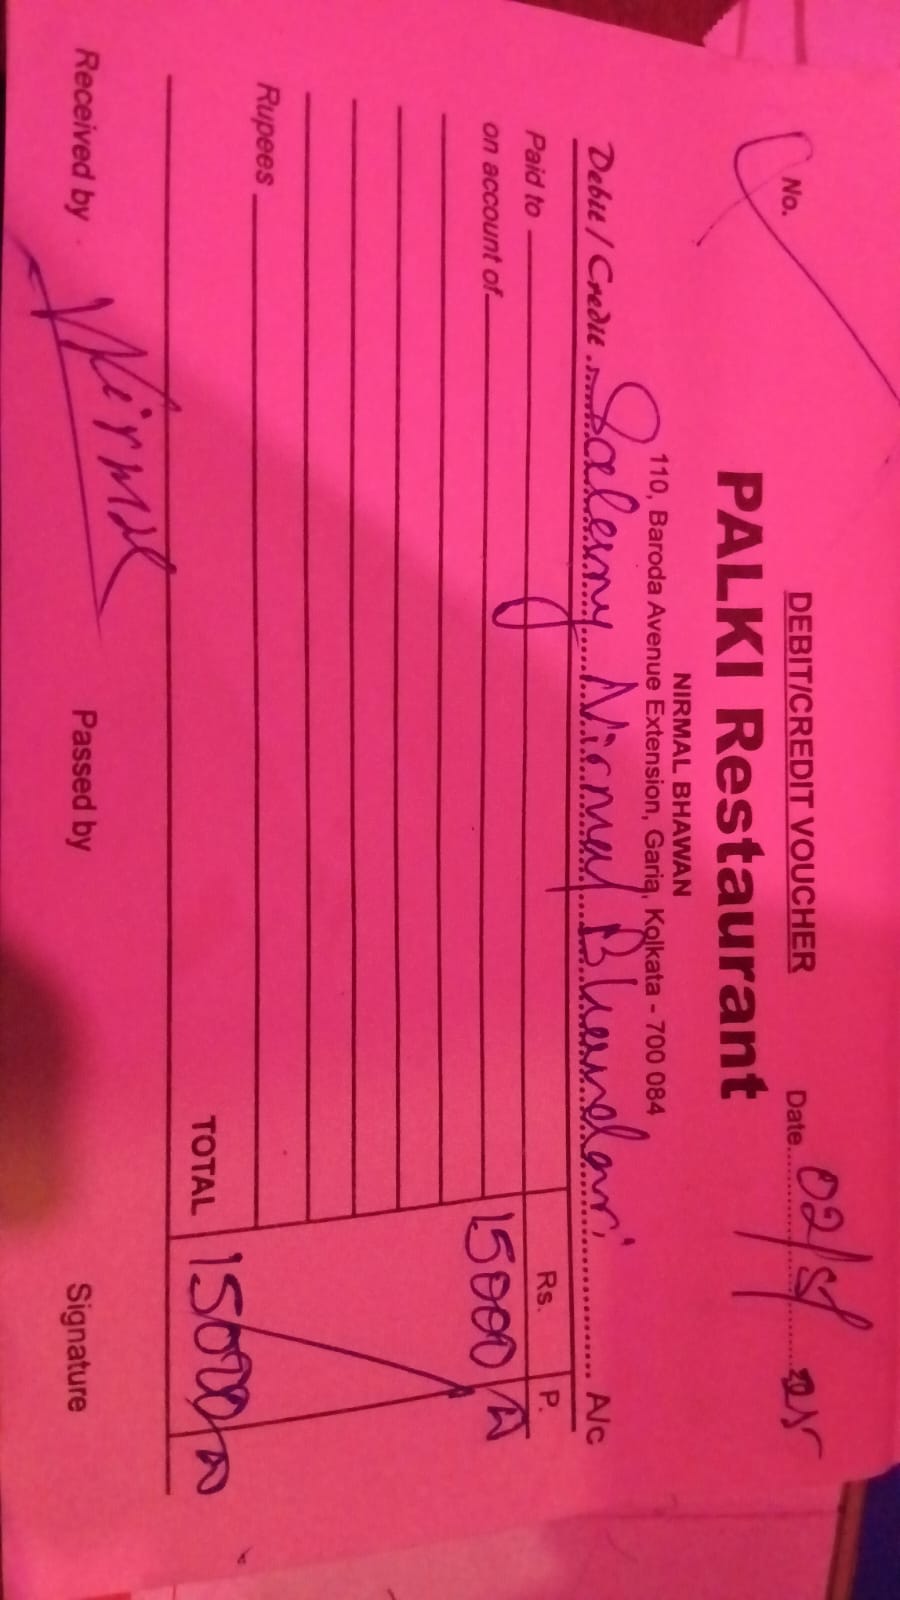 DEBIT/CREDIT VOUCHER
No. Date 02/5/25
PALKI Restaurant
NIRMAL BHAWAN
110, Baroda Avenue Extension, Garia, Kolkata - 700 084
Debit / Credit Nirmal A/c
Rs. P.
Paid to
on account of 15000/-
Rupees
TOTAL 15000/-
Nirmal
Received by Passed by Signature